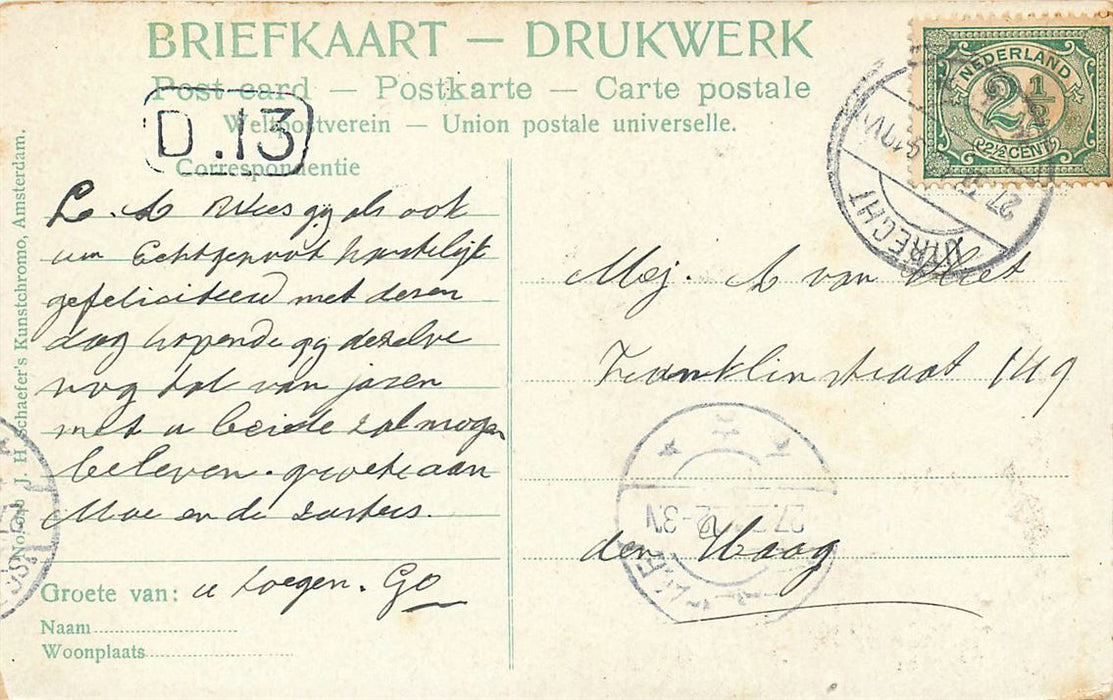 BRIEFKAART — DRUKWERK
Post card — Postkarte — Carte postale
Weltpostverein — Union postale universelle.
D.13
Correspondentie
L. A Wees gij als ook
uw Echtgenoot hartelijk
gefeliciteerd met dezen
dag hopende gij dezelve
nog tal van jaren
met u beide zal mogen
beleven. groete aan
Moe en de zusters.
Groete van: u toegen. Go
Naam
Woonplaats
NEDERLAND
2½
2½ CENT
UTRECHT
Mej. A van Vliet
Franklinstraat 149
den Haag
J. H. Schaefer's Kunstchromo, Amsterdam.